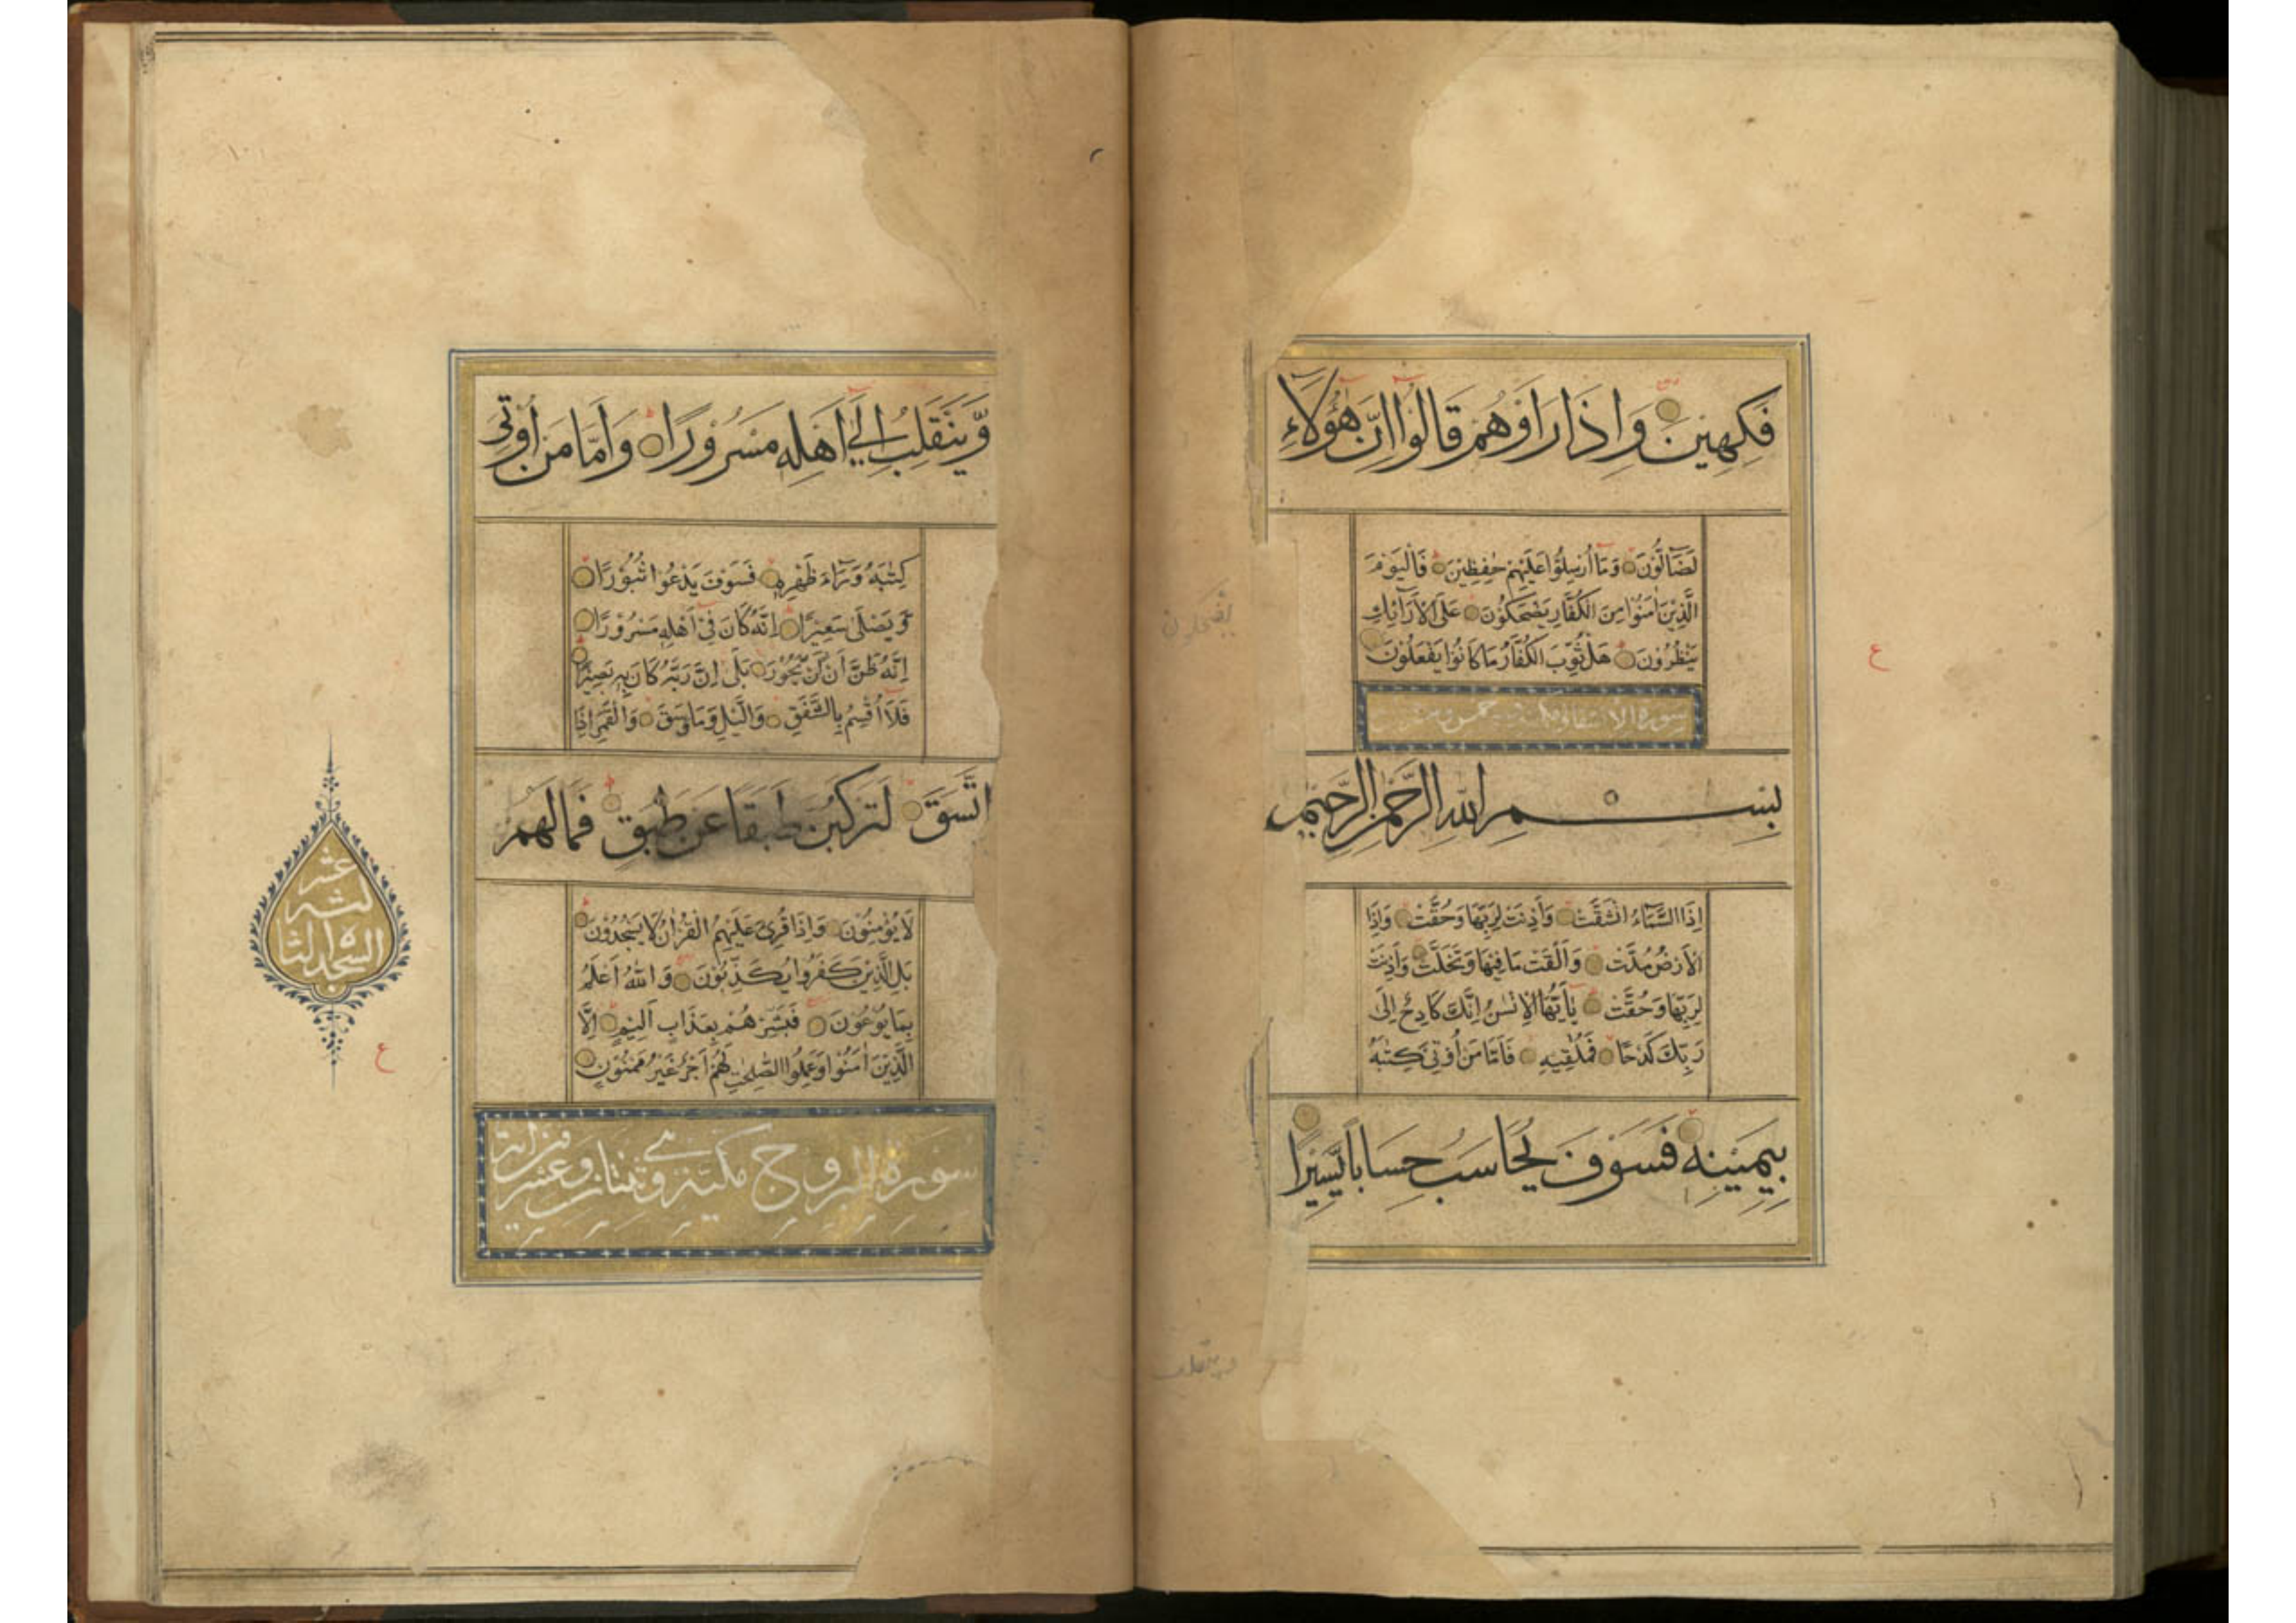 فَكِهِينَ وَإِذَا رَأَوْهُمْ قَالُوا إِنَّ هَٰؤُلَاءِ
لَضَالُّونَ وَمَا أُرْسِلُوا عَلَيْهِمْ حَٰفِظِينَ فَالْيَوْمَ
الَّذِينَ اٰمَنُوا مِنَ الْكُفَّارِ يَضْحَكُونَ عَلَى الْأَرَائِكِ
يَنْظُرُونَ هَلْ ثُوِّبَ الْكُفَّارُ مَا كَانُوا يَفْعَلُونَ
سورة الانشقاق مكية
بِسْمِ اللَّهِ الرَّحْمَٰنِ الرَّحِيمِ
إِذَا السَّمَاءُ انْشَقَّتْ وَأَذِنَتْ لِرَبِّهَا وَحُقَّتْ وَإِذَا
الْأَرْضُ مُدَّتْ وَأَلْقَتْ مَا فِيهَا وَتَخَلَّتْ وَأَذِنَتْ
لِرَبِّهَا وَحُقَّتْ يَا أَيُّهَا الْإِنْسَٰنُ إِنَّكَ كَادِحٌ إِلَى
رَبِّكَ كَدْحًا فَمُلَٰقِيهِ فَأَمَّا مَنْ أُوتِيَ كِتَٰبَهُ
بِيَمِينِهِ فَسَوْفَ يُحَاسَبُ حِسَابًا يَسِيرًا
ع
وَّيَنْقَلِبُ إِلَى أَهْلِهِ مَسْرُورًا وَأَمَّا مَنْ أُوتِيَ
كِتَٰبَهُ وَرَاءَ ظَهْرِهِ فَسَوْفَ يَدْعُوا ثُبُورًا
وَّيَصْلَى سَعِيرًا إِنَّهُ كَانَ فِي أَهْلِهِ مَسْرُورًا
إِنَّهُ ظَنَّ أَنْ لَنْ يَّحُورَ بَلَى إِنَّ رَبَّهُ كَانَ بِهِ بَصِيرًا
فَلَا أُقْسِمُ بِالشَّفَقِ وَالَّيْلِ وَمَا وَسَقَ وَالْقَمَرِ إِذَا
اتَّسَقَ لَتَرْكَبُنَّ طَبَقًا عَنْ طَبَقٍ فَمَا لَهُمْ
لَا يُؤْمِنُونَ وَإِذَا قُرِئَ عَلَيْهِمُ الْقُرْاٰنُ لَا يَسْجُدُونَ
بَلِ الَّذِينَ كَفَرُوا يُكَذِّبُونَ وَاللَّهُ أَعْلَمُ
بِمَا يُوعُونَ فَبَشِّرْهُمْ بِعَذَابٍ أَلِيمٍ إِلَّا
الَّذِينَ اٰمَنُوا وَعَمِلُوا الصَّٰلِحَٰتِ لَهُمْ أَجْرٌ غَيْرُ مَمْنُونٍ
سورة البروج مكية وهي ثنتان وعشرون اية
عشر
السجدة
ع